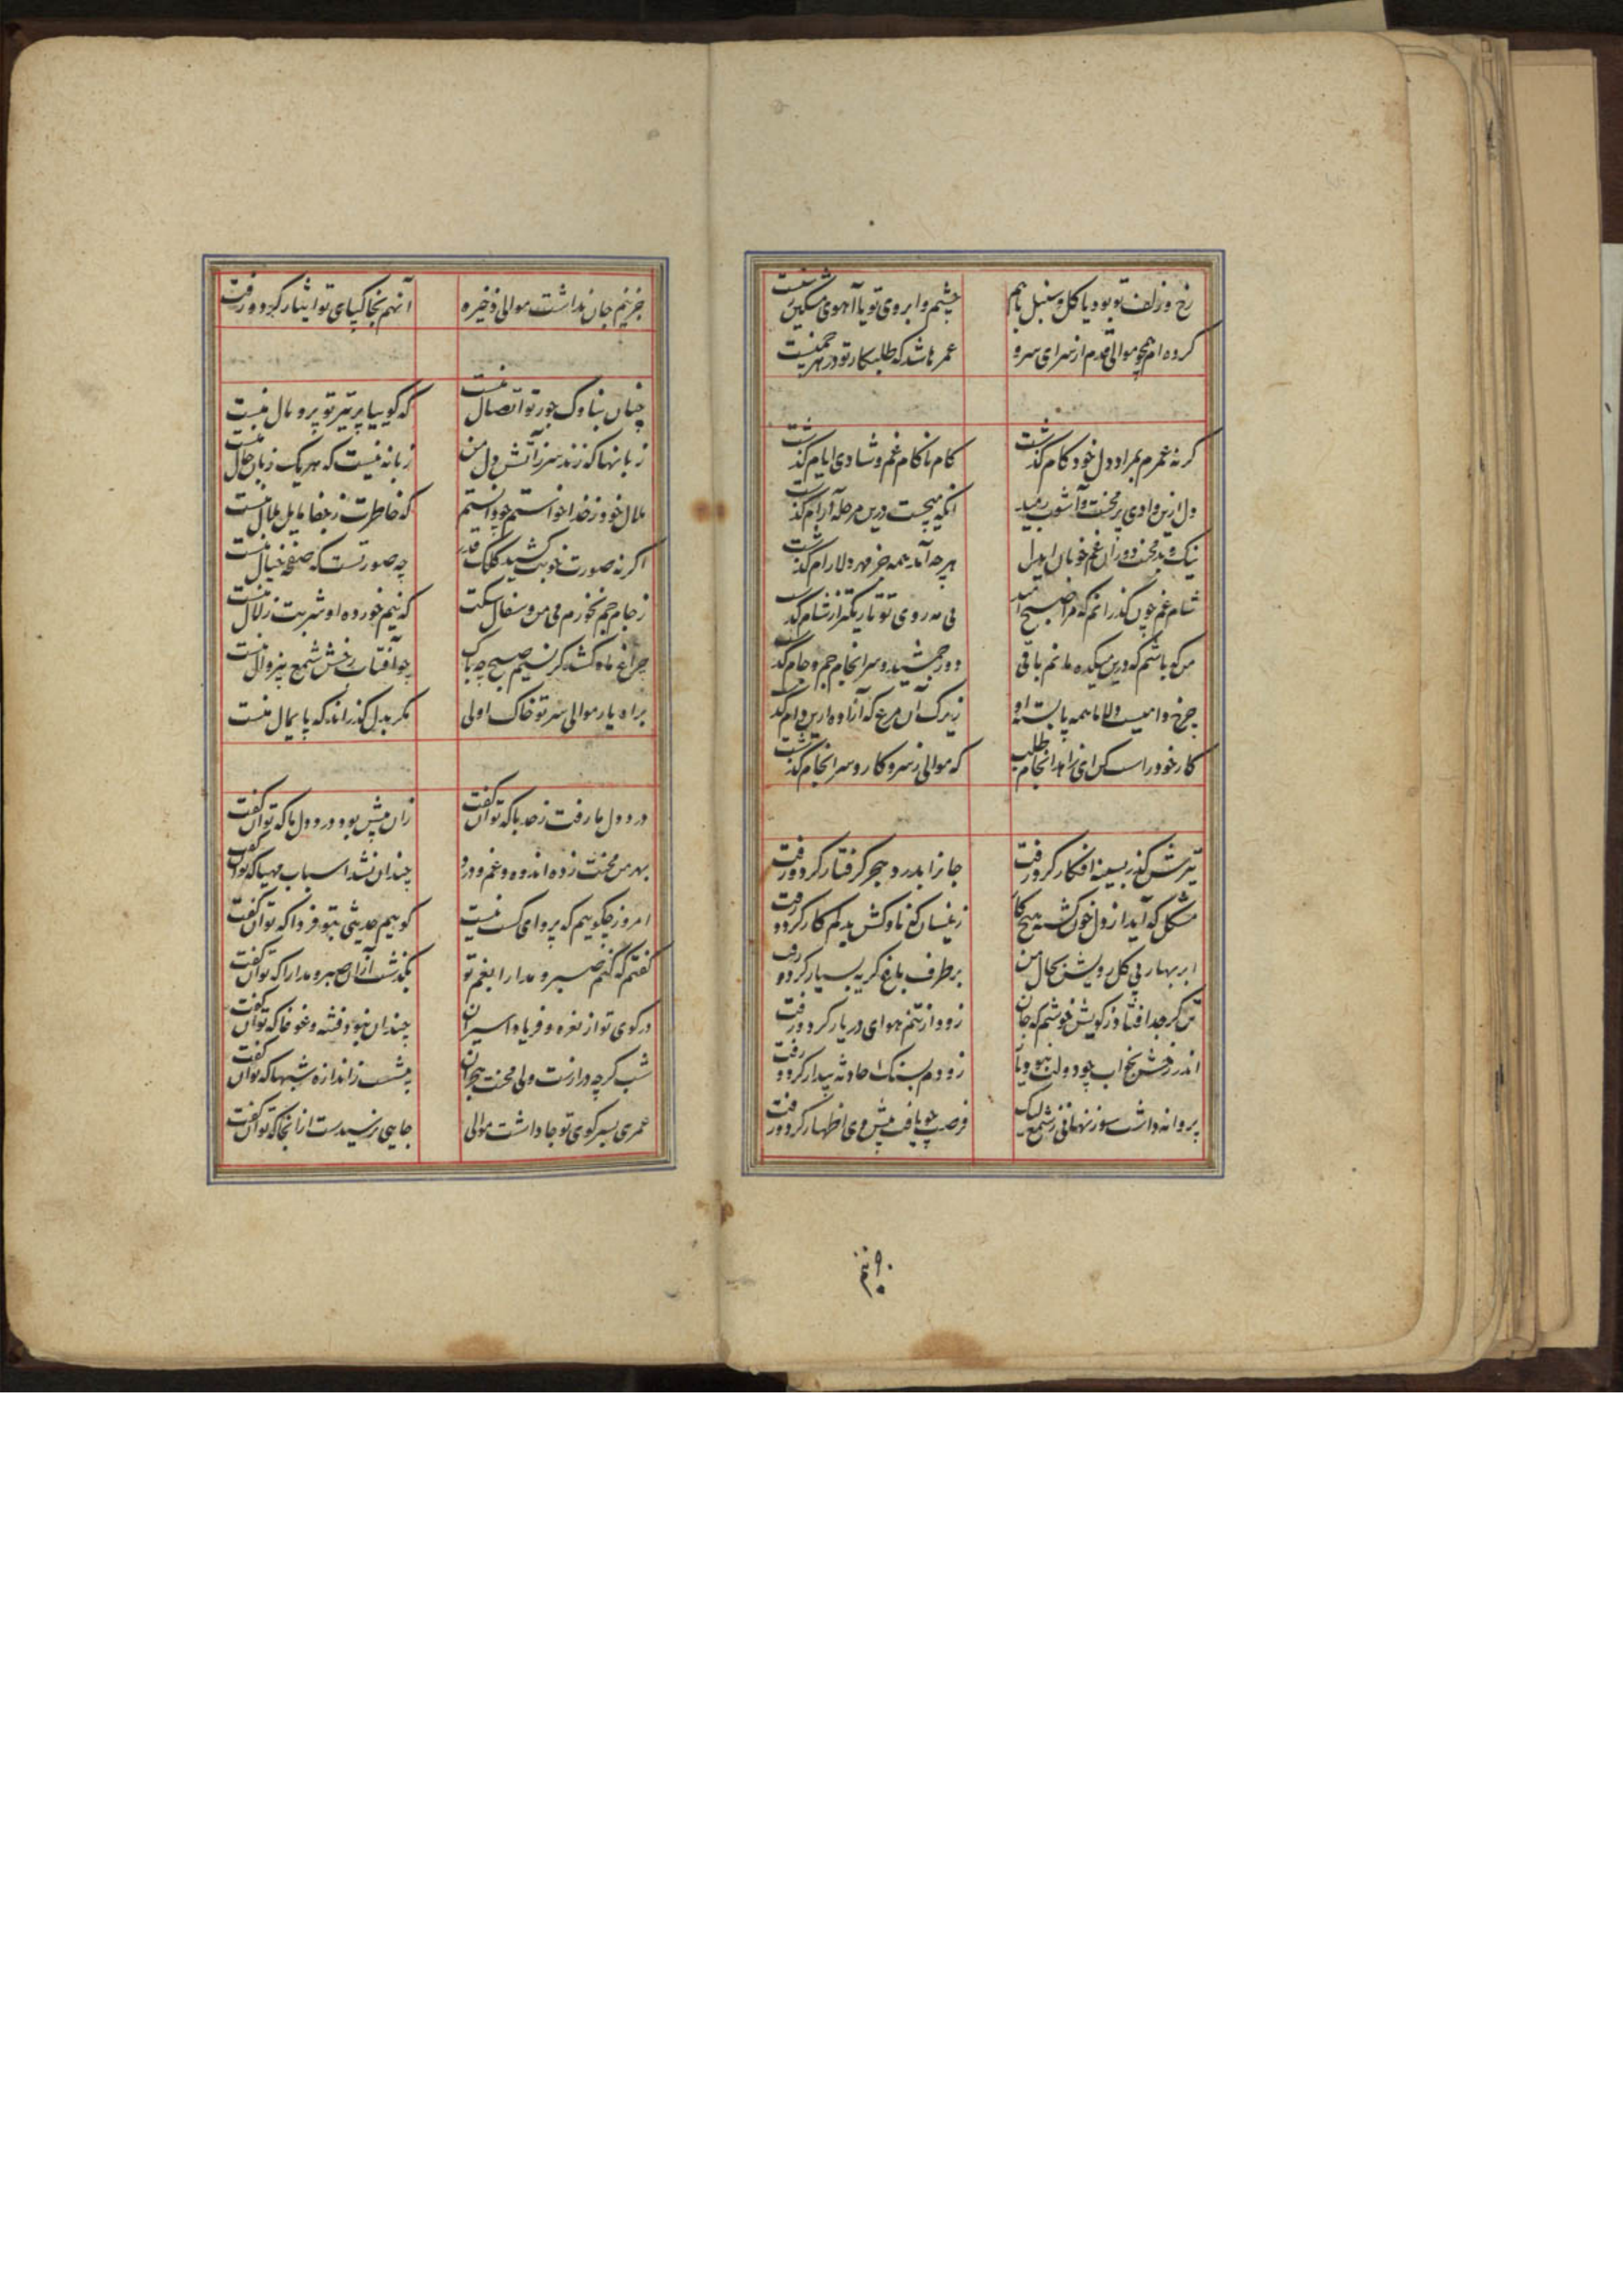 رخ و زلف تو بود یا کل و سنبل باهم چشم و ابروی تو یا آهوی مشکین
کرده ام همچو موالی قدم از سر ای سرو عمر ها شد که طلبکار تو در هر چمنیست
کرنه عمرم بمراد دل خود کام کذشت کام ناکام غم و شادی ایام کذشت
دل ازین وادی پر محنت و آشوب رمید انکه میجست درین مرحله آرام کذشت
نیک و بد محنت دوران غم خوبان ایدل هر چه آمد همه جز مهر دلارام کذشت
شام غم چون کذرانم که مرا صبح امید بی مه روی تو تاریکتر از شام کذشت
من که باشم که درین میکده مانم باقی دور جمشید و سرانجام جم و جام کذشت
چرخ دامیست دلا ما همه پا بسته او زیرک آن مرغ که آزاده ازین دام کذشت
کار خود راست کن ای زاهد انجام طلب که موالی ز سر و کار و سرانجام کذشت
تیرش کذر بسینه افکار کرد و رفت جانرا بدرد هجر کرفتار کرد و رفت
مشکل که آید از دل خون کشته هیچ کار زینسان که ناوکش بدلم کار کرد و رفت
ابر بهار بی کل رویش بحال من برطرف باغ کریه بسیار کرد و رفت
تن کر جدا فتاد ز کویش خوشم که جان زود از تنم هوای در یار کرد و رفت
اندر رخش بخواب چو دولت نبود زود دلم بسنک حادثه بیدار کرد و رفت
پروانه داشت سوز نهانی ز شمع لیک فرصت چو یافت پیش وی اظهار کرد و رفت
جز نیم جان نداشت موالی ذخیره آنهم بخاکپای تو ایثار کرد و رفت
چنان بناوک جور تو اتصالم نیست که کوییا پر تیر تو پر و بالم نیست
زبانها که زند سر ز آتش دل من زبانه نیست که هر یک زبان حالم نیست
ملال خود ز خدا خواستم چو دانستم که خاطرت ز جفا مایل ملالم نیست
اکر نه صورت خوبت کشید کلک قدر چه صورتست که صفحه خیالم نیست
ز جام جم نخورم می من و سفال سکت که نیم خورده او شربت زلالم نیست
چراغ ماه کشد کر نسیم صبح چه باک چو آفتاب رخش شمع بیزوالم نیست
براه یار موالی سر تو خاک اولی مکر بدل کذراند که پایمالم نیست
درد دل ما رفت ز حد با که توان کفت زان پیش بود درد دل ما که توان کفت
بهر من محنت زده اندوه و غم و درد چندان نشد اسباب مهیا که توان کفت
امروز چکوییم که پروای کست نیست کوییم حدیثی بتو فردا که توان کفت
کفتم که کنم صبر و مدارا بغم تو بکذشت از آن صبر و مدارا که توان کفت
در کوی تو از نعره و فریاد اسیران چندان نبود فتنه و غوغا که توان کفت
شب کرچه درازست ولی محنت هجران بیشست ز اندازه شبها که توان کفت
عمری بسر کوی تو جا داشت موالی جایی نرسیدست از آنجا که توان کفت